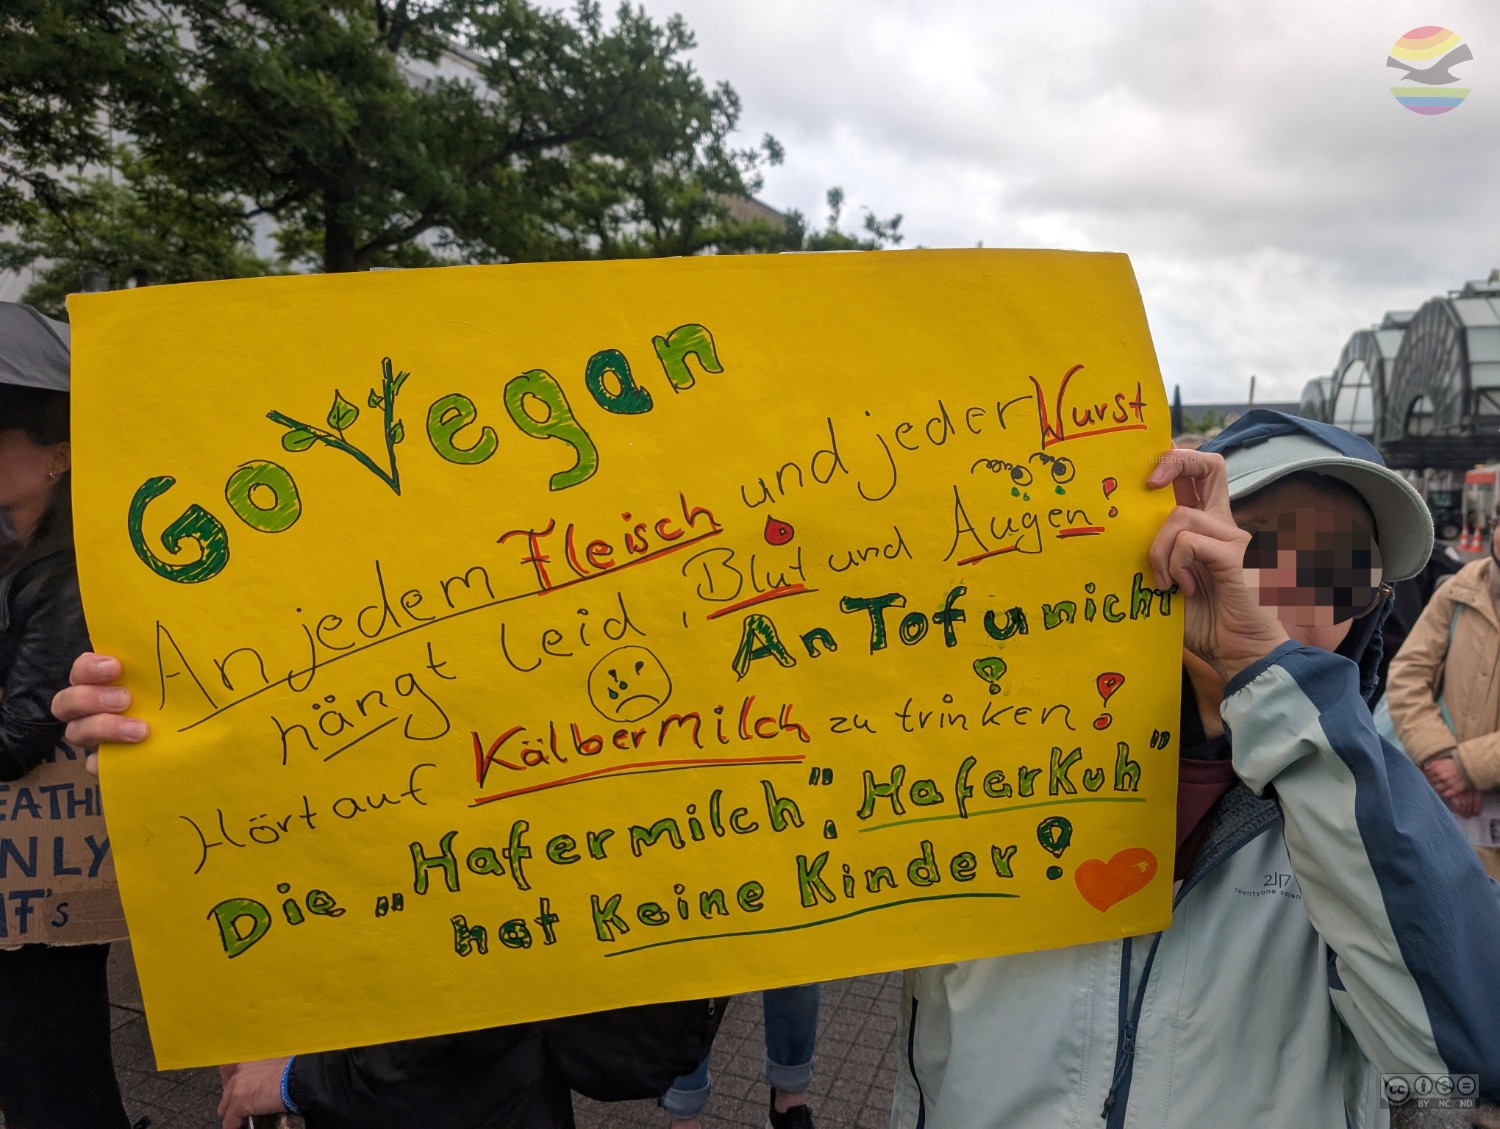 Go Vegan
An jedem Fleisch und jeder Wurst
hängt Leid, Blut und Augen!
An Tofu nicht!
Hört auf Kälbermilch zu trinken!
Die „Hafermilch", HaferKuh"
hat Keine Kinder!
EATH
NLY
IT's
217
twentyone seven
luftspiel.de
CC BY NC ND